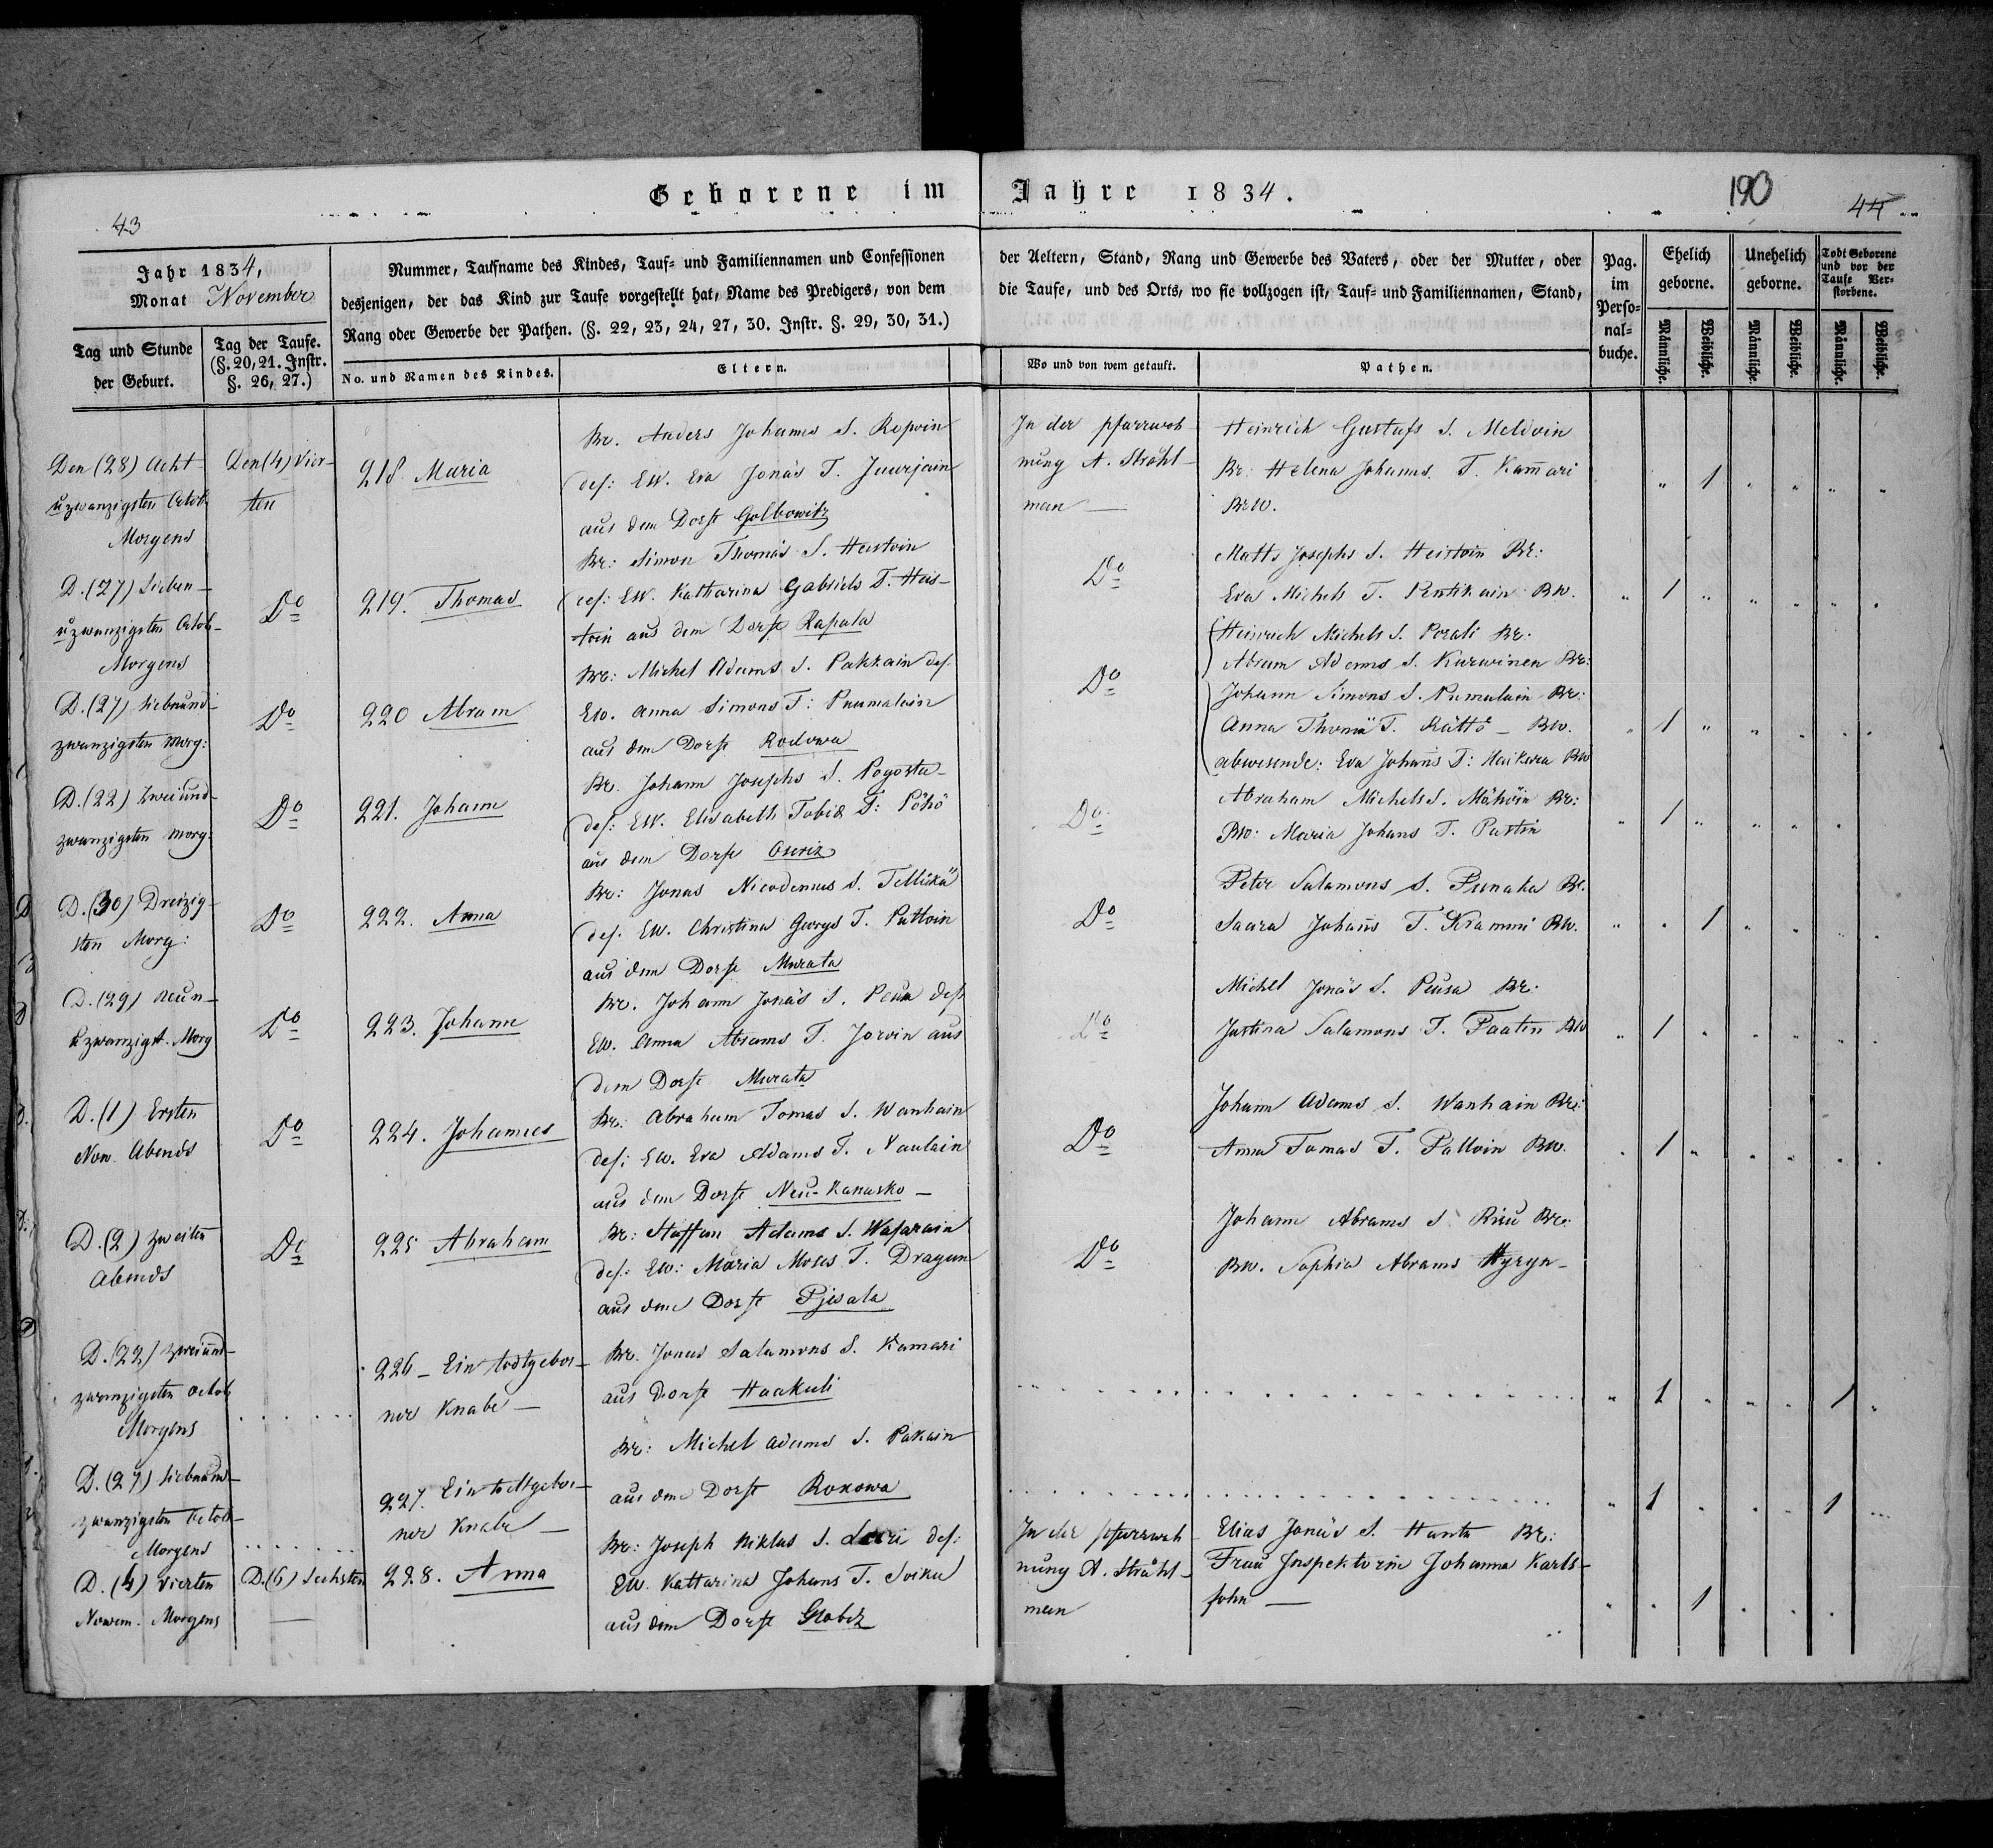 Geborene im Jahre 1834.
190
43
44
Jahr 1834,
Monat November
Nummer, Taufname des Kindes, Tauf- und Familiennamen und Confessionen
desjenigen, der das Kind zur Taufe vorgestellt hat, Name des Predigers, von dem
Rang oder Gewerbe der Pathen. (§. 22, 23, 24, 27, 30. Instr. §. 29, 30, 31.)
der Aeltern, Stand, Rang und Gewerbe des Vaters, oder der Mutter, oder
die Taufe, und des Orts, wo sie vollzogen ist, Tauf- und Familiennamen, Stand,
Pag. im Perso-nal-buche.
Ehelich geborne.
Unehelich geborne.
Todt Geborene und vor der Taufe Ver-storbene.
Tag und Stunde der Geburt.
Tag der Taufe. (§. 20, 21. Instr. §. 26, 27.)
No. und Namen des Kindes.
Eltern.
Wo und von wem getauft.
Pathen.
Männliche. Weibliche. Männliche. Weibliche. Männliche. Weibliche.
Den (28) Acht-
uzwanzigsten Octob.
Morgens
Den (4) Vier-
ten
218 Maria
Br. Anders Johanns S. Repoin
des: EW. Eva Jonäs T. Juurjain
aus dem Dorfe Golbowitz
In der Pfarrwoh-
nung A. Strähl-
man
Heinrich Gustafs S. Meldoin
Br: Helena Johanns. T. Kam̄ari
BrW.
" 1 " " " "
D. (27) Sieben-
uzwanzigsten Octob-
Morgens
Do
219. Thomas
Br: Simon Thomäs S. Heistoin
des: EW. Katharina Gabriels T. Heis-
toin aus dem Dorfe Rapala
Do
Matts Josephs S. Heistoin Br:
Eva Michels T. Pentikain BW.
" 1 " " " " "
D. (27) Siebnund-
zwanzigsten Morg:
Do
220 Abram
Br: Michel Adams S. Pakkain des.
EW. Anna Simons T: Puumalain
aus dem Dorfe Rodowa
Do
Heinrich Michels S. Porali Br.
Abram Adams S. Kurwinen Br:
Johann Simons S. Pumalain Br:
Anna Thomä T. Rättö - BW.
abwesende: Eva Johañs T: Haikara BW
" 1 " " " " "
D. (22) Zweiund-
zwanzigsten Morg:
Do
221. Johann
Br. Johann Josephs S. Pogosta-
des: EW. Elisabeth Tobiä T: Pöhö
aus dem Dorfe Oseriz
Do
Abraham Michels S. Möhöin Br:
BW: Maria Johans T. Partin
" 1 " " " "
D. (30) Dreizig-
sten Morg:
Do
222. Anna
Br: Jonas Nicodemus S. Tellikä
des. EW. Christina Georgs T. Puttoin
aus dem Dorfe Murata
Do
Peter Salamons S. Punaha Br.
Saara Johañs T. Krammi BW.
" " 1 " " "
D. (29) Neun-
uzwanzigst. Morg
Do
223. Johann
Br. Johann Jonäs S. Peura des
EW. Anna Abrams T. Jorvin aus
dem Dorfe Murata
Do
Michel Jonäs S. Peusa Br.
Justina Salamons T. Paaten BW
" 1 " " " "
D. (1) Ersten
Nov. Abends
Do
224. Johannes
Br: Abraham Tomas S. Wanhain
des: EW. Eva Adams T. Naulain
aus dem Dorfe Neu-Kanasko -
Do
Johann Adams S. Wanhain Br:
Anna Tomas T. Pällöin BW.
" 1 " " " "
D. (2) Zweiten
Abends
Do
225 Abraham
Br: Staffan Adams S. Wasarain
des: EW: Maria Moses T. Dragun
aus dem Dorfe Pjisala
Do
Johann Abrams S. Risu Br:
BW. Sophia Abrams Hyryn-
D. (22) Zweiund-
zwanzigsten Octob
Morgens
226 - Ein todtgebor-
ner Knabe -
Br. Jonas Salamons S. Kamari
aus Dorfe Haakuli
" 1 " " " 1 "
D. (27) Siebnund-
zwanzigsten Octob-
Morgens
227. Ein todtgebor-
ner Knabe -
Br: Michel Adams S. Pakain
aus dem Dorfe Rokowa
" 1 " " " 1 "
D. (4) Vierten
Novem. Morgens
D. (6) Sechsten
228. Anna
Br: Joseph Niklas S. Lori des:
EW. Kattarina Johans T. Soiku
aus dem Dorfe Globiz
In der Pfarrwoh
nung A. Strähl-
man
Elias Jonäs S. Hanta Br:
Frau Inspektorin Johanna Karls-
sohn -
" " 1 " " "